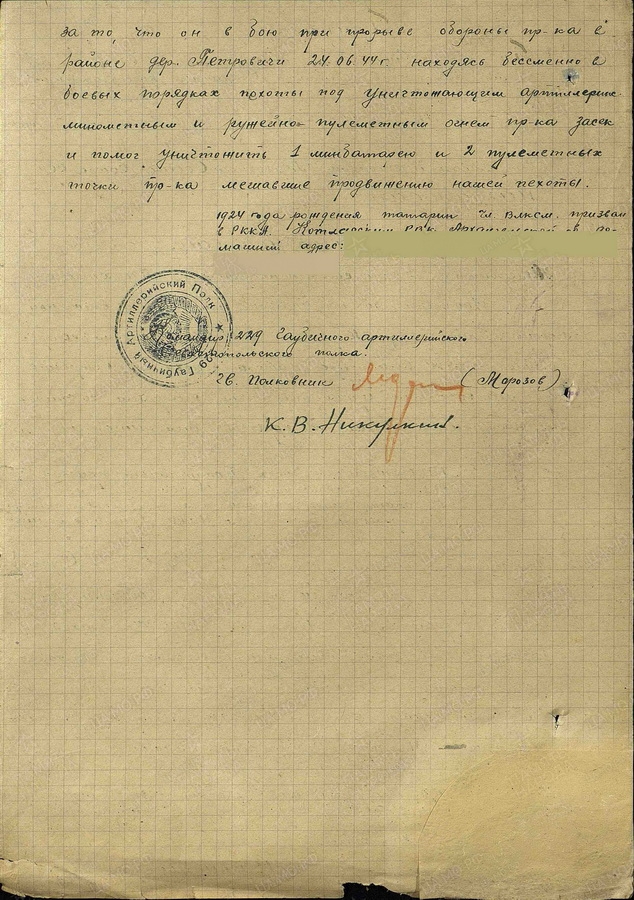 за то, что он в бою при прорыве обороны пр-ка в
районе дер. Петровичи 24.06.44 г. находясь бессменно в
боевых порядках пехоты под уничтожающим артиллерис.
минометным и ружейно-пулеметным огнем пр-ка засек
и помог уничтожить 1 минбатарею и 2 пулеметных
точки пр-ка мешавшие продвижению нашей пехоты.
1924 года рождения татарин чл. ВЛКСМ. призван
в РККА. Котласским РВК Архангельской
машний адрес:
Артиллерийский Полк
229 Гаубичный
229 Гаубичного артиллерийского
полка.
Гв. Полковник (Морозов)
К. В. Никулкин.